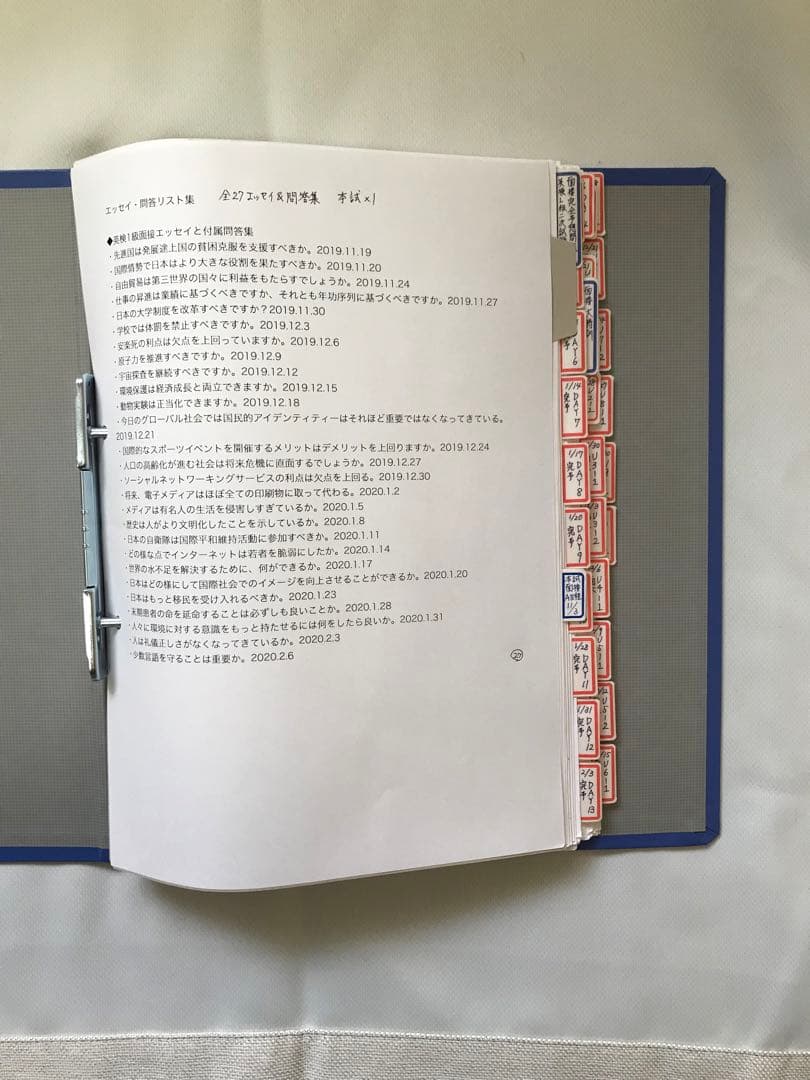 エッセイ・問答リスト集　全27エッセイ&問答集　本試×1
◆英検1級面接エッセイと付属問答集
・先進国は発展途上国の貧困克服を支援すべきか。2019.11.19
・国際情勢で日本はより大きな役割を果たすべきか。2019.11.20
・自由貿易は第三世界の国々に利益をもたらすでしょうか。2019.11.24
・仕事の昇進は業績に基づくべきですか、それとも年功序列に基づくべきですか。2019.11.27
・日本の大学制度を改革すべきですか？2019.11.30
・学校では体罰を禁止すべきですか。2019.12.3
・安楽死の利点は欠点を上回っていますか。2019.12.6
・原子力を推進すべきですか。2019.12.9
・宇宙探査を継続すべきですか。2019.12.12
・環境保護は経済成長と両立できますか。2019.12.15
・動物実験は正当化できますか。2019.12.18
・今日のグローバル社会では国民的アイデンティティーはそれほど重要ではなくなってきている。
2019.12.21
・国際的なスポーツイベントを開催するメリットはデメリットを上回りますか。2019.12.24
・人口の高齢化が進む社会は将来危機に直面するでしょうか。2019.12.27
・ソーシャルネットワーキングサービスの利点は欠点を上回る。2019.12.30
・将来、電子メディアはほぼ全ての印刷物に取って代わる。2020.1.2
・メディアは有名人の生活を侵害しすぎているか。2020.1.5
・歴史は人がより文明化したことを示しているか。2020.1.8
・日本の自衛隊は国際平和維持活動に参加すべきか。2020.1.11
・どの様な点でインターネットは若者を脆弱にしたか。2020.1.14
・世界の水不足を解決するために、何ができるか。2020.1.17
・日本はどの様にして国際社会でのイメージを向上させることができるか。2020.1.20
・日本はもっと移民を受け入れるべきか。2020.1.23
・末期患者の命を延命することは必ずしも良いことか。2020.1.28
・人々に環境に対する意識をもっと持たせるには何をしたら良いか。2020.1.31
・人は礼儀正しさがなくなってきているか。2020.2.3
・少数言語を守ることは重要か。2020.2.6
㉗
DAY6
1/14 DAY7
完予
1/17 DAY8
完予
1/20 DAY9
完予
本試
面接
11/3
1/28 DAY11
完予
1/31 DAY12
完予
2/3 DAY13
完予